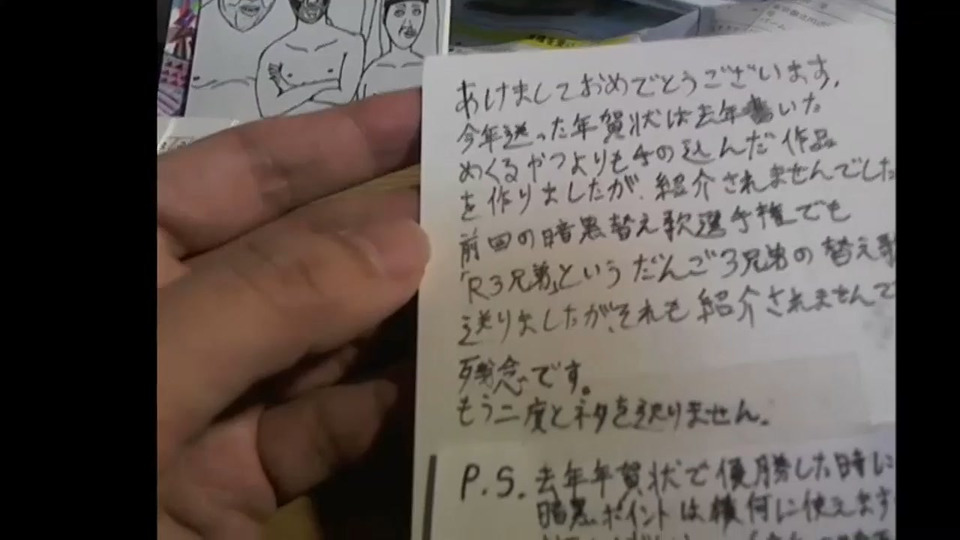 あけましておめでとうございます。
今年送った年賀状は去年書いた
めくるやつよりも手の込んだ作品
を作りましたが、紹介されませんでした
前回の暗黒替え歌選手権でも
「R3兄弟」というだんご3兄弟の替え歌
送りましたが、それも紹介されませんで
残念です。
もう二度とネタを送りません。
P.S. 去年年賀状で優勝した時に
暗黒ポイントは 何に使えます